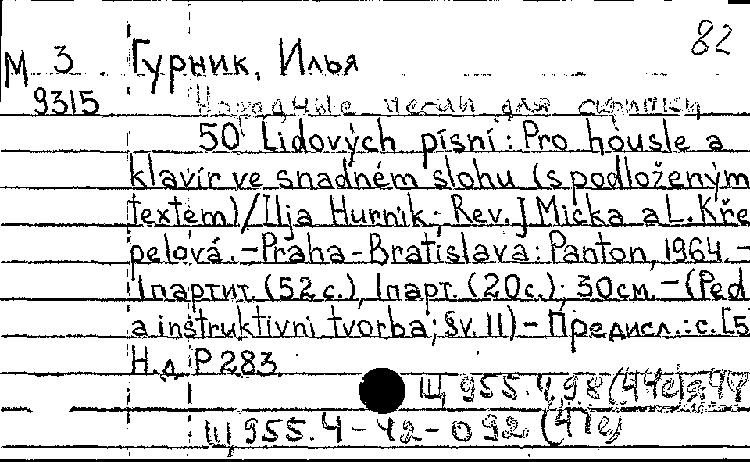 82
М 3 Гурник, Илья
9315 Народные песни для скрипки
50 Lidových písní: Pro housle a
klavír ve snadném slohu (s podloženým
textem)/Ilja Hurnik; Rev. J Micka a L. Kře
pelová. – Praha – Bratislava: Panton, 1964. –
1партит. (52 с.), 1парт. (20с.); 30см. – (Ped
a instruktivni tvorba; Sv. 11) – Предисл.: с. [5
Н.д. P 283
Щ 955.4
Щ 955.4-42-092 (4Че)